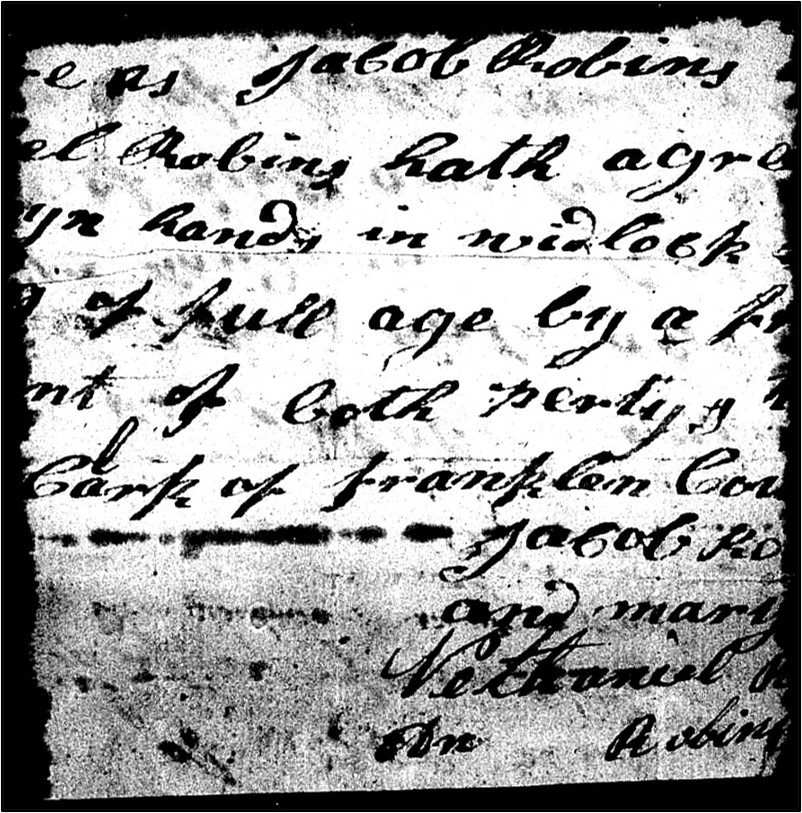 re as Jacob Robins
el Robins hath agre
yn hands in widlock
of full age by a fr
nt of both pertys
Clark of franklen Cou
Jacob Ro
and mary
Nethaniel R
An Robins